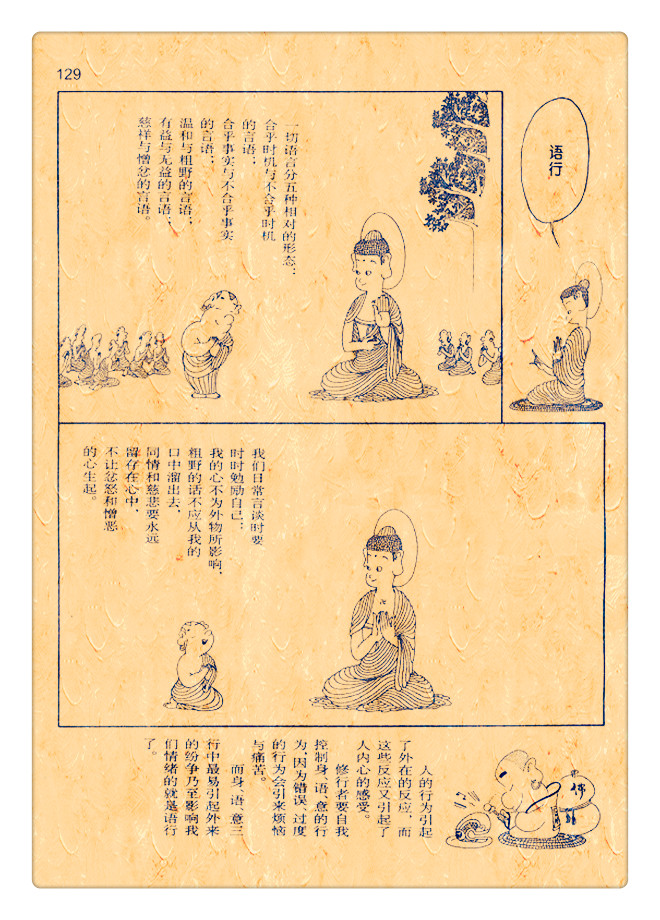 129
语行
一切语言分五种相对的形态：
合乎时机与不合乎时机
的言语；
合乎事实与不合乎事实
的言语；
温和与粗野的言语；
有益与无益的言语；
慈祥与憎忿的言语。
我们日常言谈时要
时时勉励自己：
我的心不为外物所影响，
粗野的话不应从我的
口中溜出去，
同情和慈悲要永远
留存在心中，
不让忿怒和憎恶
的心生起。
人的行为引起
了外在的反应，而
这些反应又引起了
人内心的感受。
修行者要自我
控制身、语、意的行
为，因为错误、过度
的行为会引来烦恼
与痛苦。
而身、语、意三
行中最易引起外来
的纷争乃至影响我
们情绪的就是语行
了。
佛